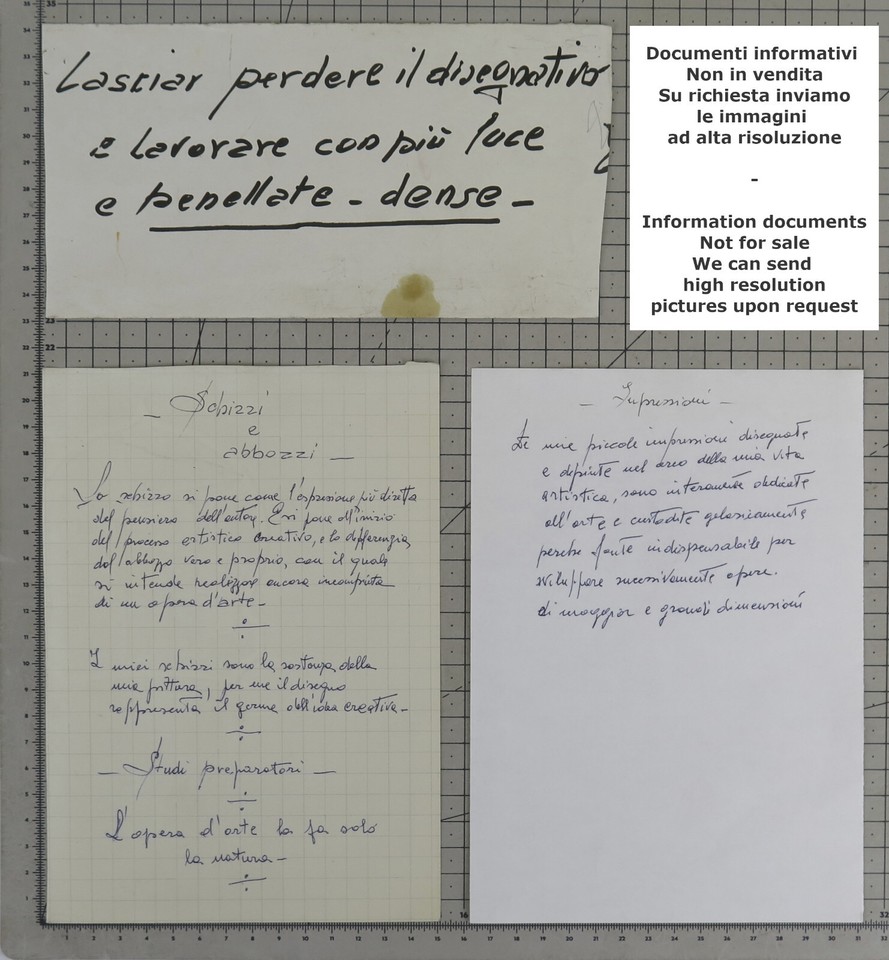 Lasciar perdere il disegnativo
e lavorare con più luce
e penellate - dense -
Documenti informativi
Non in vendita
Su richiesta inviamo
le immagini
ad alta risoluzione
-
Information documents
Not for sale
We can send
high resolution
pictures upon request
- Schizzi
e
abbozzi -
Lo schizzo si pone come l'espressione più diretta
del pensiero dell'autor. Esi pone all'inizio
del processo artistico creativo, e lo differenzia
dal abbozzo vero e proprio, con il quale
si intende realizzare ancora incompiuta
di un opera d'arte -
I miei schizzi sono la sostanza della
mia pittura, per me il disegno
rappresenta il germe dell'idea creativa -
- Studi preparatori -
L'opera d'arte la fa solo
la natura -
- Impressioni -
Le mie piccole impressioni disegnate
e dipinte nel arco della mia vita
artistica, sono interamente dedicate
all'arte e custodite gelosicamente
perche fonte indispensabile per
sviluppare successivamente opere.
di maggior e grandi dimensioni